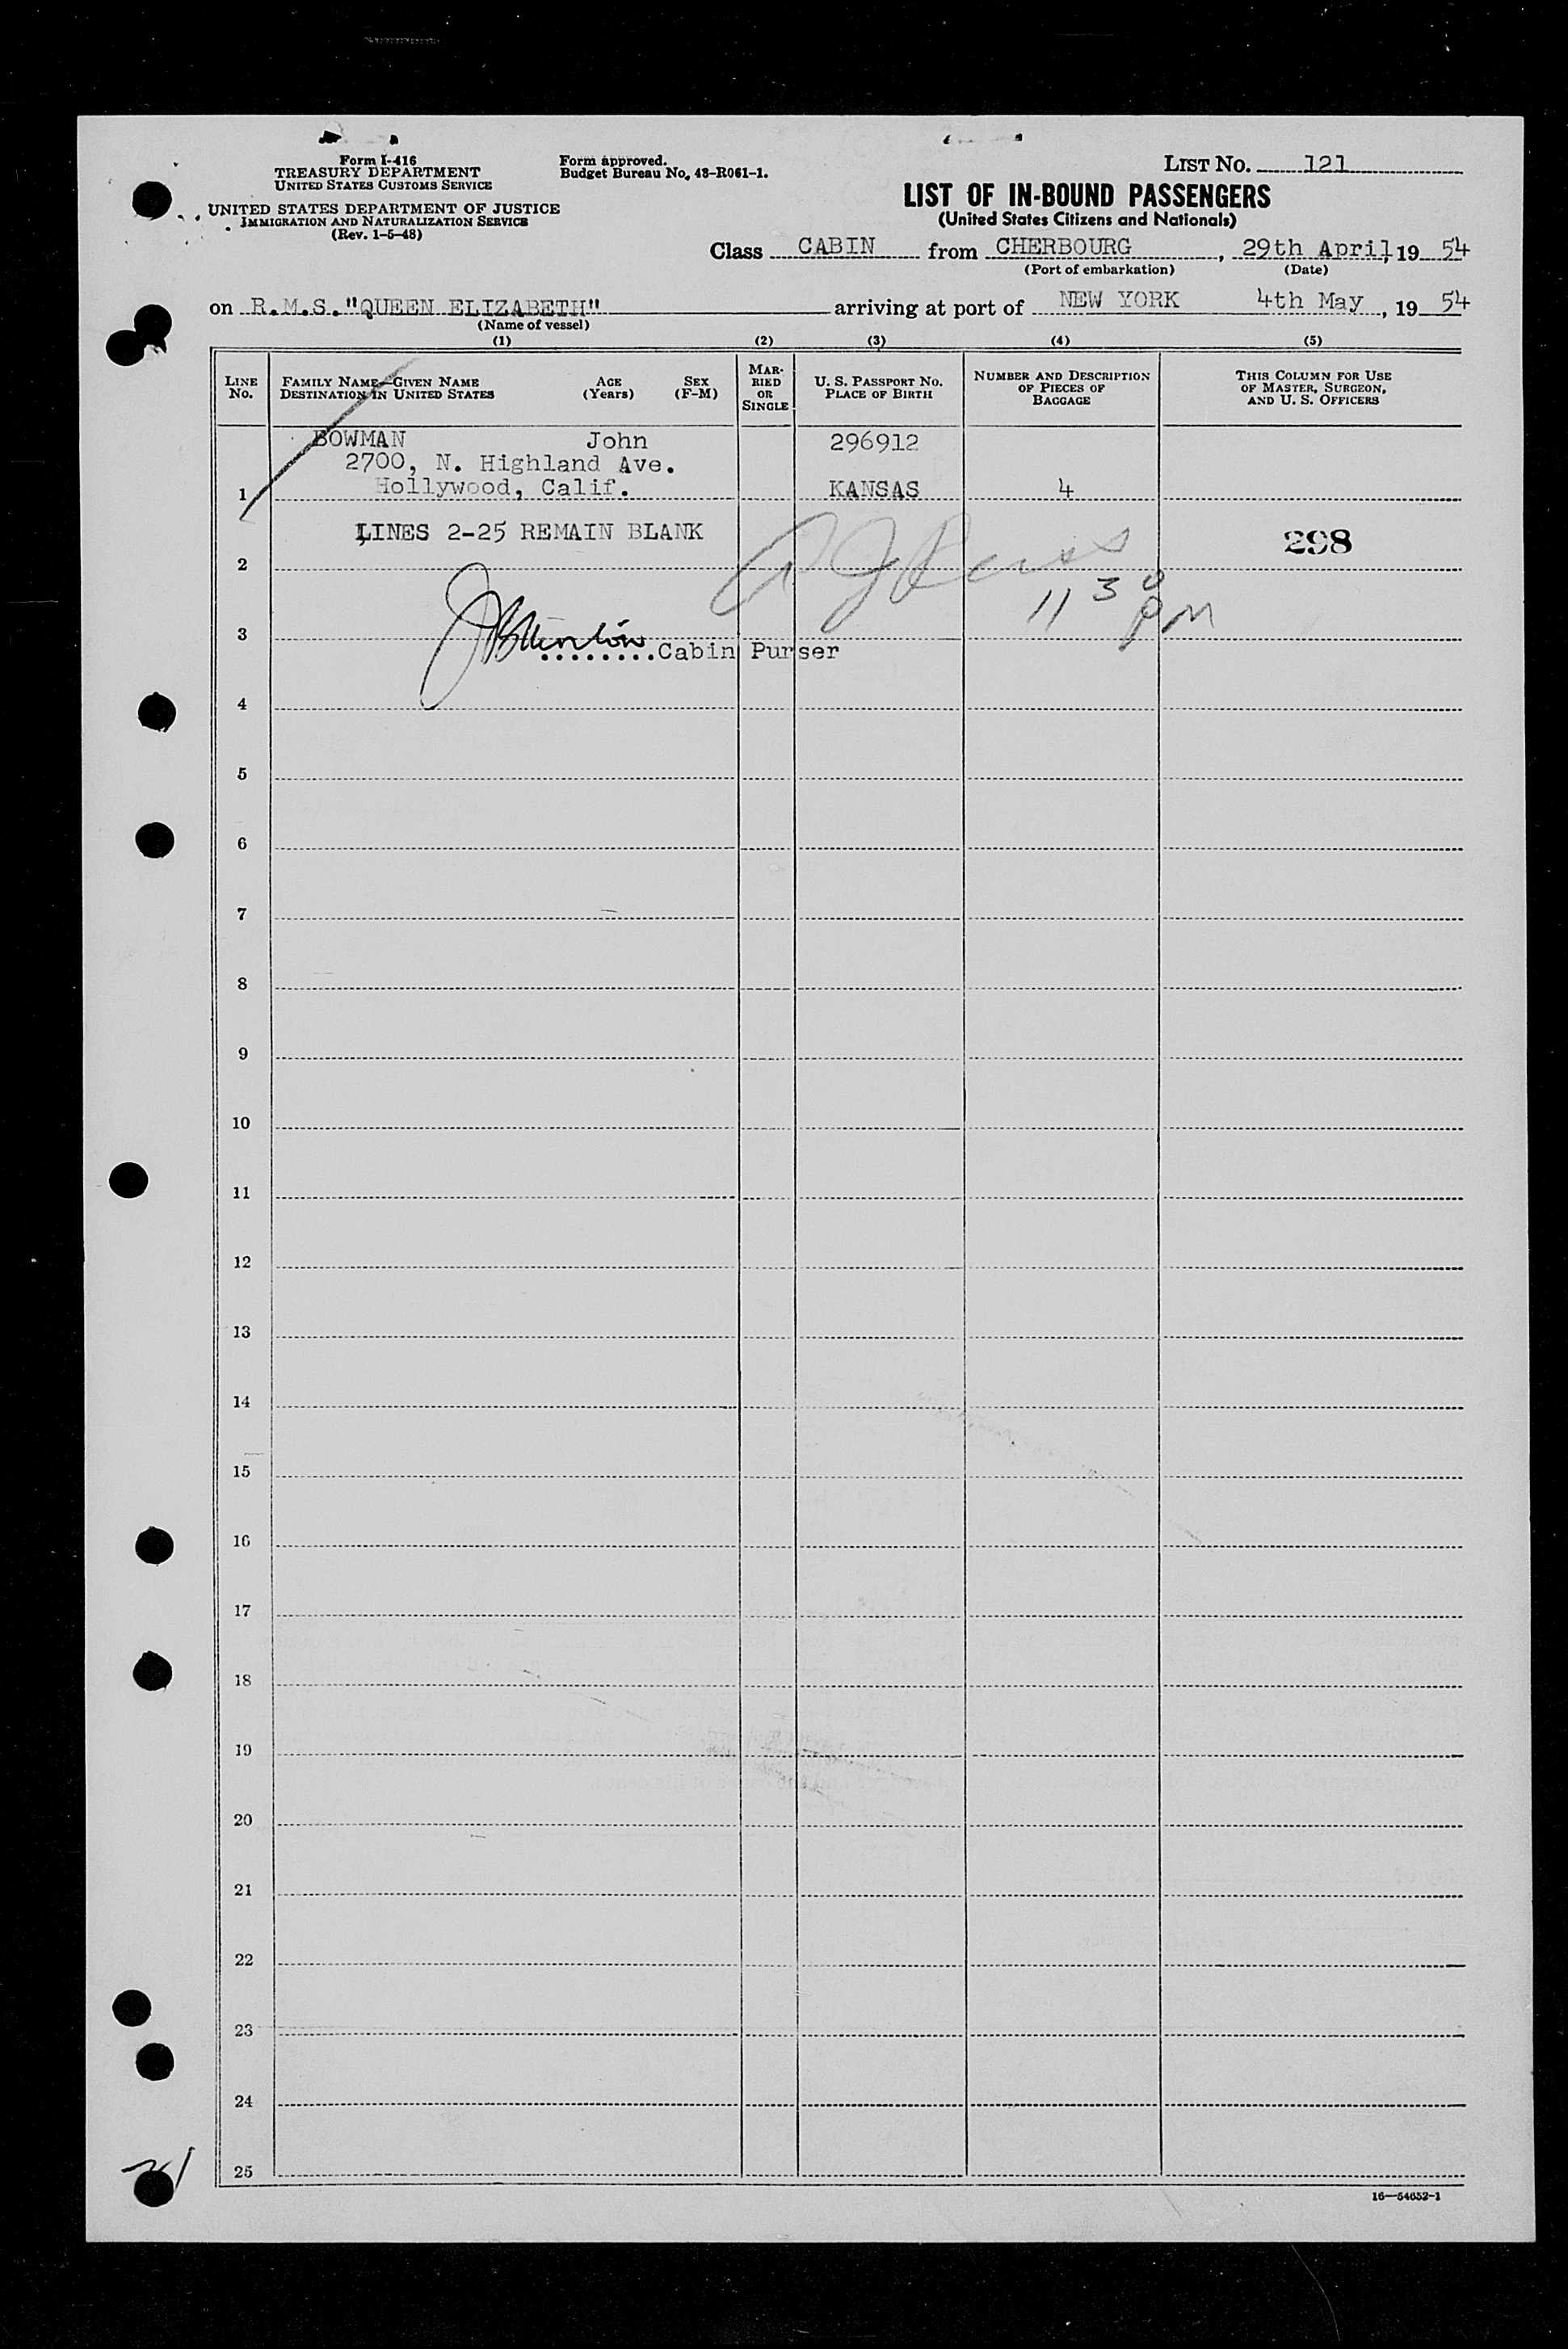 Form I-416
TREASURY DEPARTMENT
UNITED STATES CUSTOMS SERVICE
UNITED STATES DEPARTMENT OF JUSTICE
IMMIGRATION AND NATURALIZATION SERVICE
(Rev. 1-5-48)
Form approved.
Budget Bureau No. 43-R061-1.
LIST No. 121
LIST OF IN-BOUND PASSENGERS
(United States Citizens and Nationals)
Class CABIN from CHERBOURG, 29th April, 19 54
(Port of embarkation) (Date)
on R.M.S. "QUEEN ELIZABETH" arriving at port of NEW YORK 4th May, 19 54
(Name of vessel)
(1) (2) (3) (4) (5)
LINE No.
FAMILY NAME—GIVEN NAME DESTINATION IN UNITED STATES
AGE (Years)
SEX (F-M)
MARRIED OR SINGLE
U. S. PASSPORT NO. PLACE OF BIRTH
NUMBER AND DESCRIPTION OF PIECES OF BAGGAGE
THIS COLUMN FOR USE OF MASTER, SURGEON, AND U. S. OFFICERS
BOWMAN John 296912
2700, N. Highland Ave.
1 Hollywood, Calif. KANSAS 4
LINES 2-25 REMAIN BLANK 298
2
11 30 PM
3
........Cabin Purser
4
5
6
7
8
9
10
11
12
13
14
15
16
17
18
19
20
21
22
23
24
25
16—54652-1